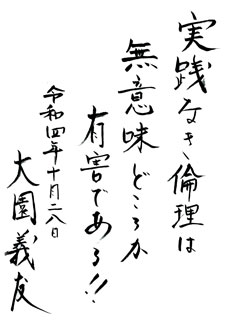 実践なき倫理は
無意味どころか
有害である!!
令和四年十月二八日
大園義友